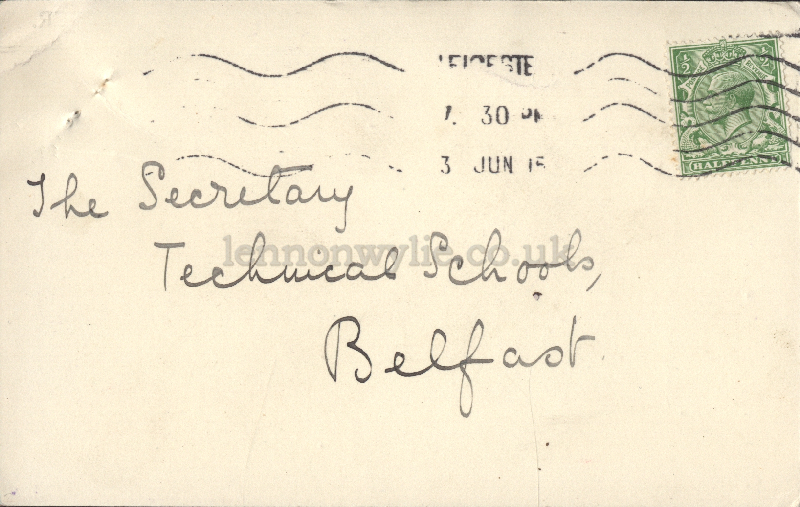 LEICESTE
7. 30 PM
3 JUN 15
½ ½
HALFPENNY
The Secretary
Technical Schools,
Belfast.
lennonwylie.co.uk